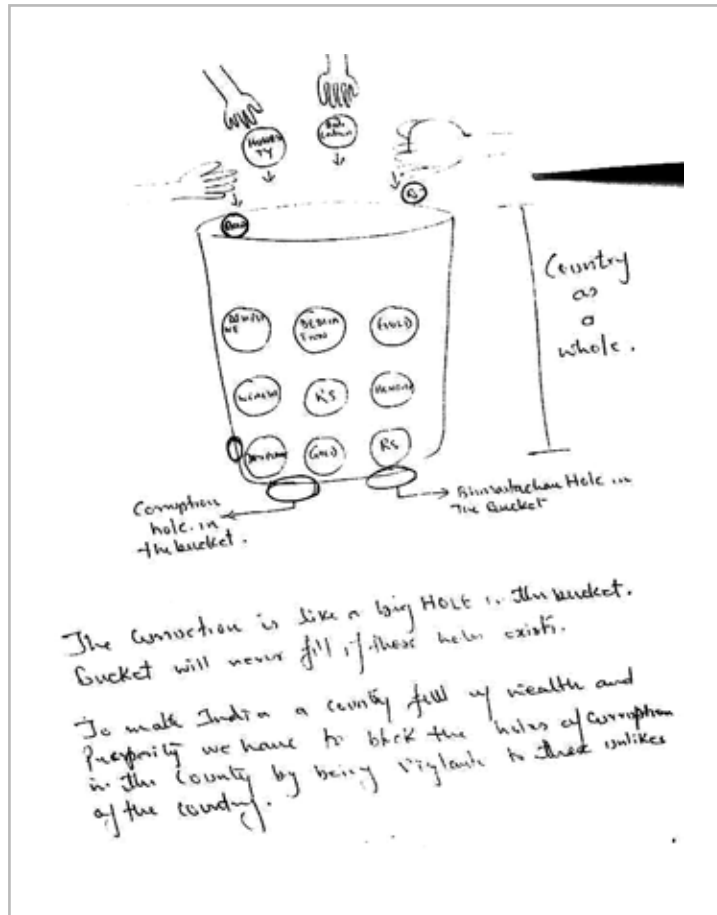 HONES
TY
RS
GOLD
DEDICA
TION
GOLD
WEALTH
RS
GOLD
RS
Country
as
a
whole.
Corruption
hole in
the bucket.
Hole in
The Bucket
The corruction is like a big HOLE in the bucket.
Bucket will never fill if these holes exists.
To make India a country full of wealth and
Prosperity we have to block the holes of corruption
in the county by being vigilante to these unlikes
of the country.